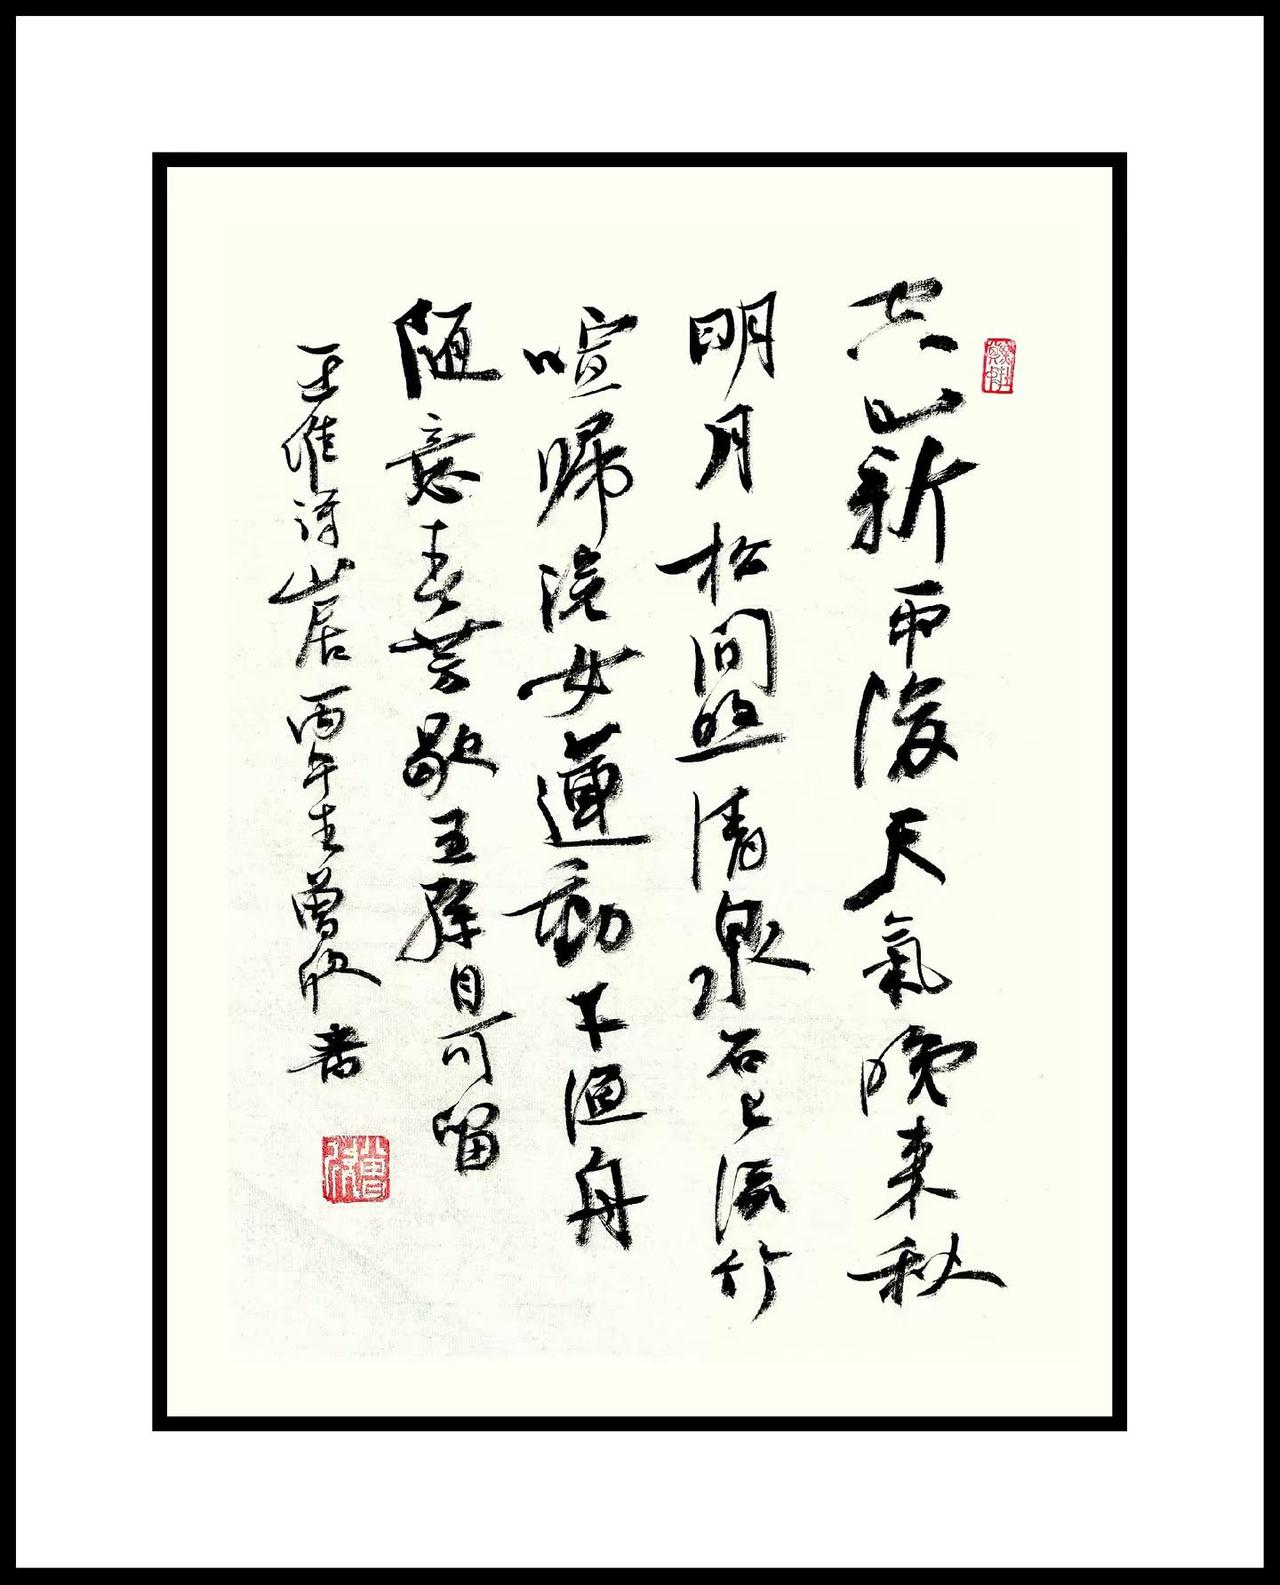 空山新雨後天氣晚來秋
明月松間照清泉石上流竹
喧歸浣女蓮動下漁舟
隨意春芳歇王孫自可留
王維詩山居丙午生曾書